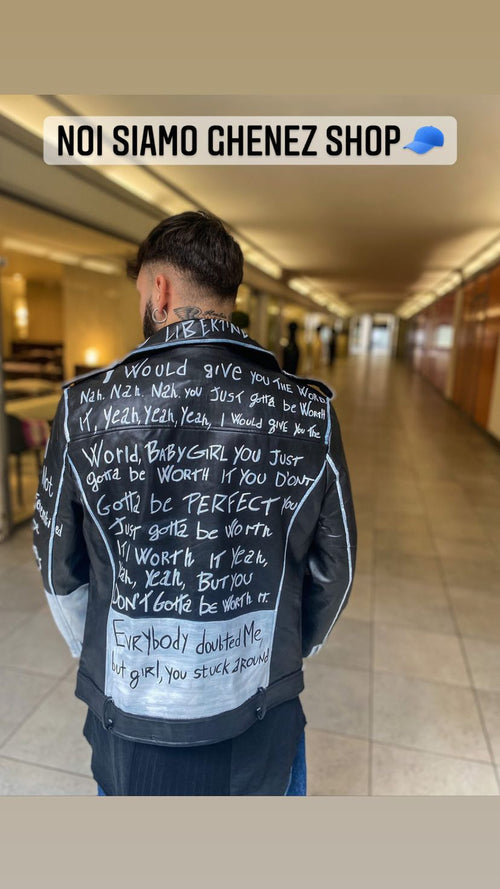 NOI SIAMO GHENEZ SHOP
LIBERTINE
I WOULD GIVE YOU THE WORLD
Nah, Nah, Nah, you Just gotta be Worth
IT, Yeah, Yeah, Yeah, I Would GIVE YOU The
World, BABY GIRL YOU JUST
gotta be WORTH IT YOU DON'T
Gotta be PERFECT you
Just gotta be Worth
IT, WORTh IT Yeah,
Yeah, Yeah, BUT YOU
DON'T Gotta be WORTH IT.
EVRYBODY doubted Me,
but girl, you stuck around
Not